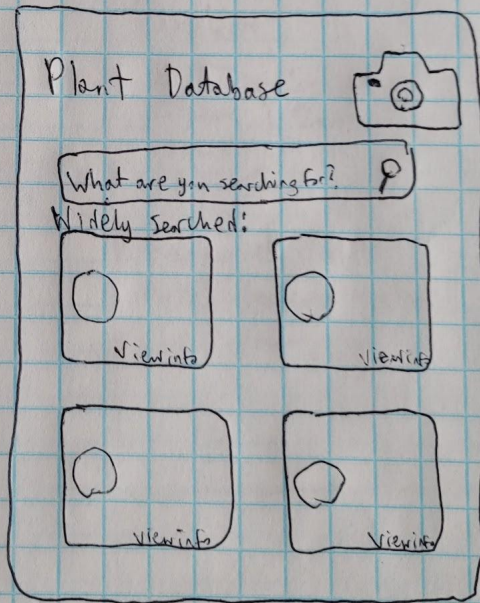 Plant Database
What are you searching for?
Widely searched:
View info
View info
View info
View info